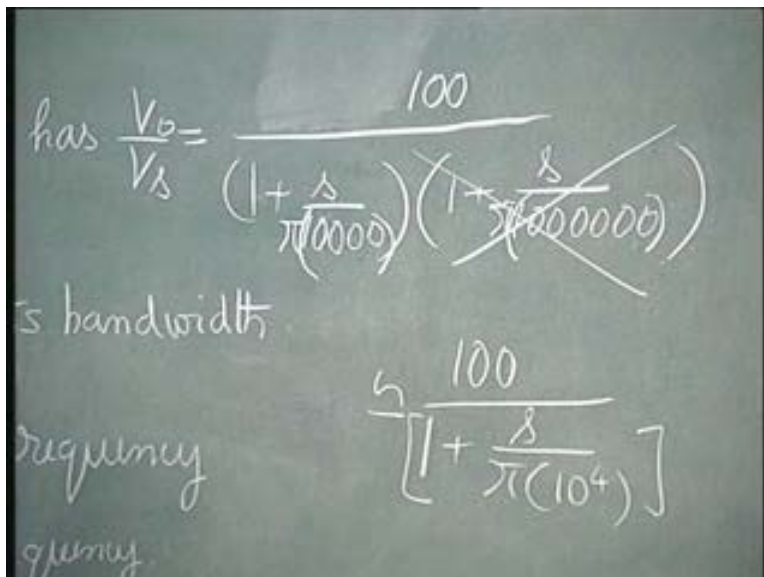 has Vo/Vs = 100 / (1 + s/π(10000)) (1 + s/π(1000000))
s bandwidth
≃ 100 / [1 + s/π(10⁴)]
requency
quency